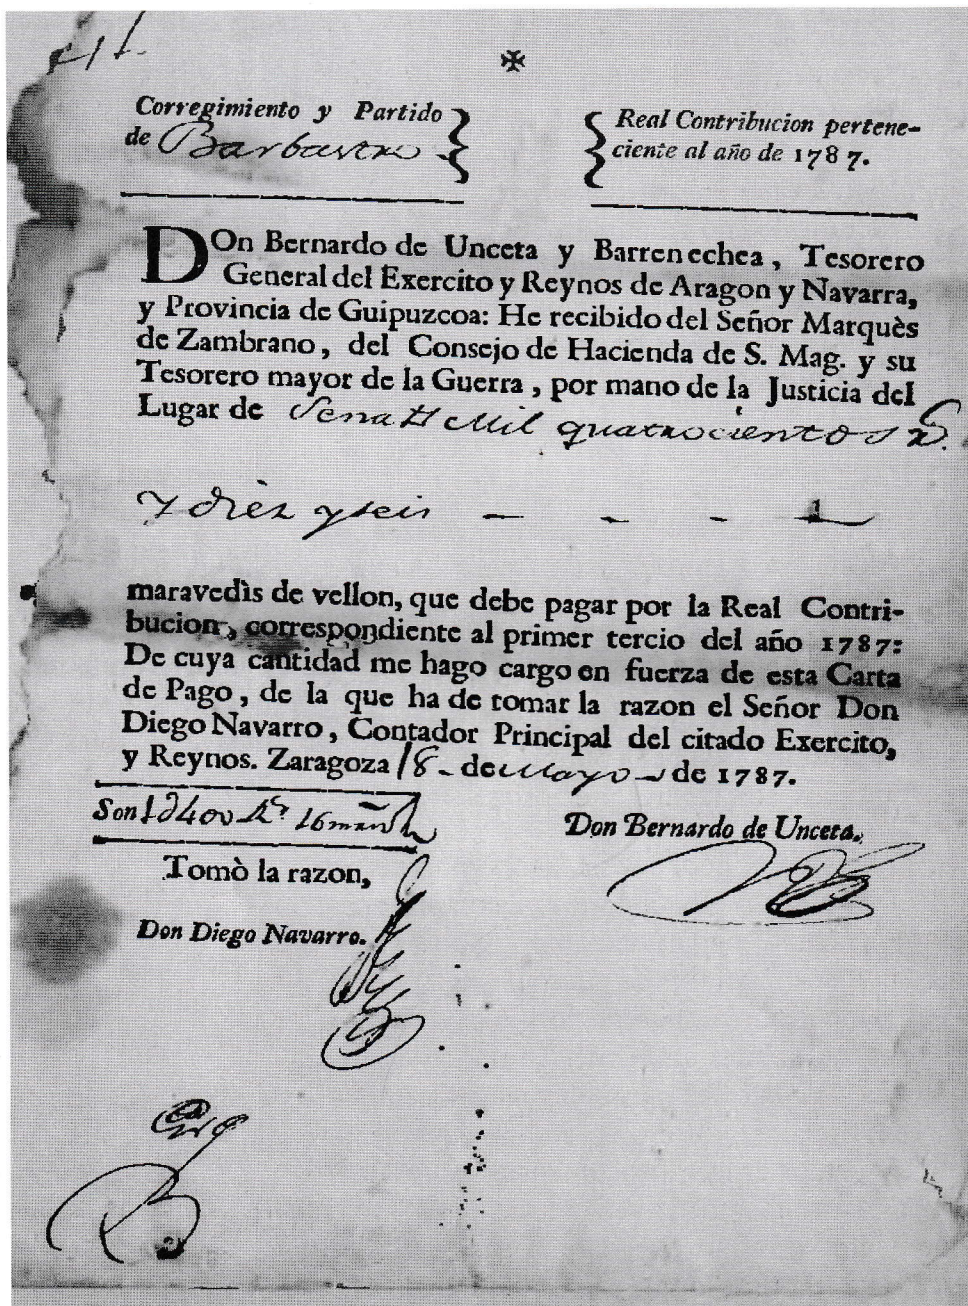 ✠
Corregimiento y Partido
de Barbastro
Real Contribucion pertene-
ciente al año de 1787.
DOn Bernardo de Unceta y Barrenechea, Tesorero
General del Exercito y Reynos de Aragon y Navarra,
y Provincia de Guipuzcoa: He recibido del Señor Marquès
de Zambrano, del Consejo de Hacienda de S. Mag. y su
Tesorero mayor de la Guerra, por mano de la Justicia del
Lugar de Sena Mil quatrocientos
y diez y seis
maravedìs de vellon, que debe pagar por la Real Contri-
bucion, correspondiente al primer tercio del año 1787:
De cuya cantidad me hago cargo en fuerza de esta Carta
de Pago, de la que ha de tomar la razon el Señor Don
Diego Navarro, Contador Principal del citado Exercito,
y Reynos. Zaragoza 18 de Mayo de 1787.
Son
Don Bernardo de Unceta.
Tomò la razon,
Don Diego Navarro.